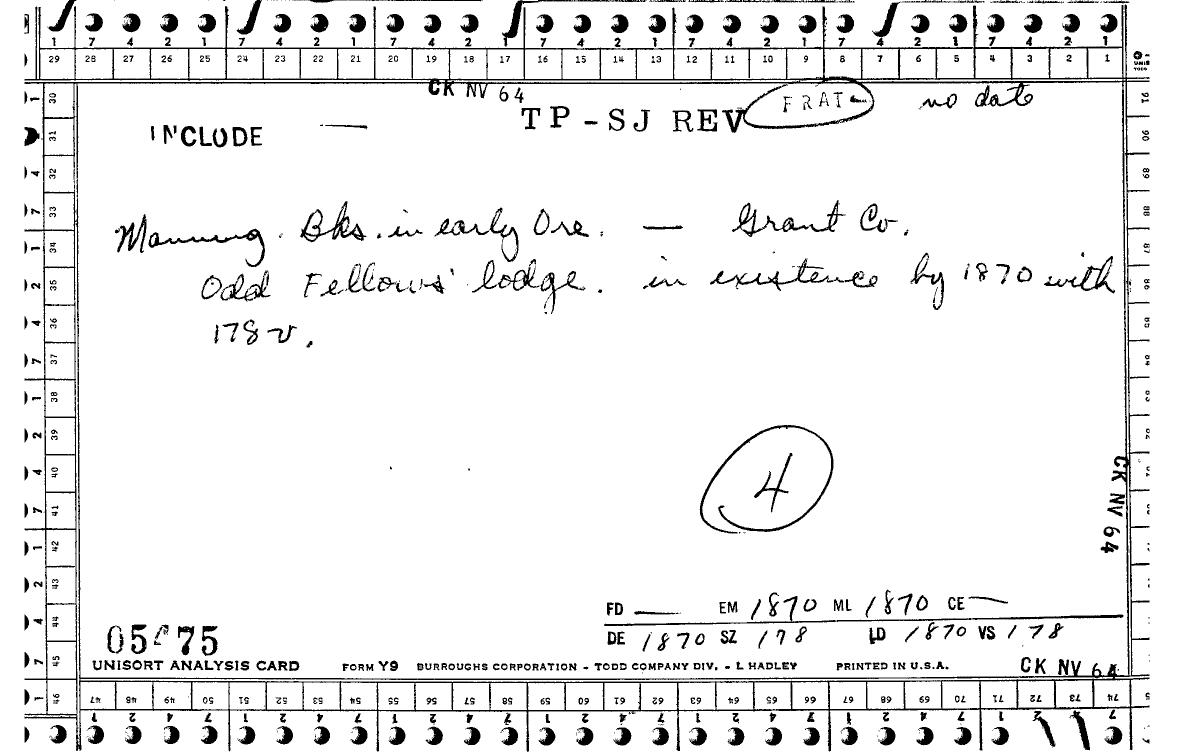 7 4 2 1 7 4 2 1 7 4 2 1 7 4 2 1 7 4 2 1 7 4 2 1 7 4 2 1
29 28 27 26 25 24 23 22 21 20 19 18 17 16 15 14 13 12 11 10 9 8 7 6 5 4 3 2 1
CK NV 64
TP-SJ REV FRAT no date
INCLUDE —
Manning. Bks. in early Ore. — Grant Co.
Odd Fellows' lodge. in existence by 1870 with
178 v.
4
CK NV 64
FD — EM 1870 ML 1870 CE —
DE 1870 SZ 178 LD 1870 VS 178
UNISORT ANALYSIS CARD FORM Y9 BURROUGHS CORPORATION - TODD COMPANY DIV. - L HADLEY PRINTED IN U.S.A. CK NV 64
30
31
32
33
34
35
36
37
38
39
40
41
42
43
44
45
46
47 48 49 50 51 52 53 54 55 56 57 58 59 60 61 62 63 64 65 66 67 68 69 70 71 72 73 74